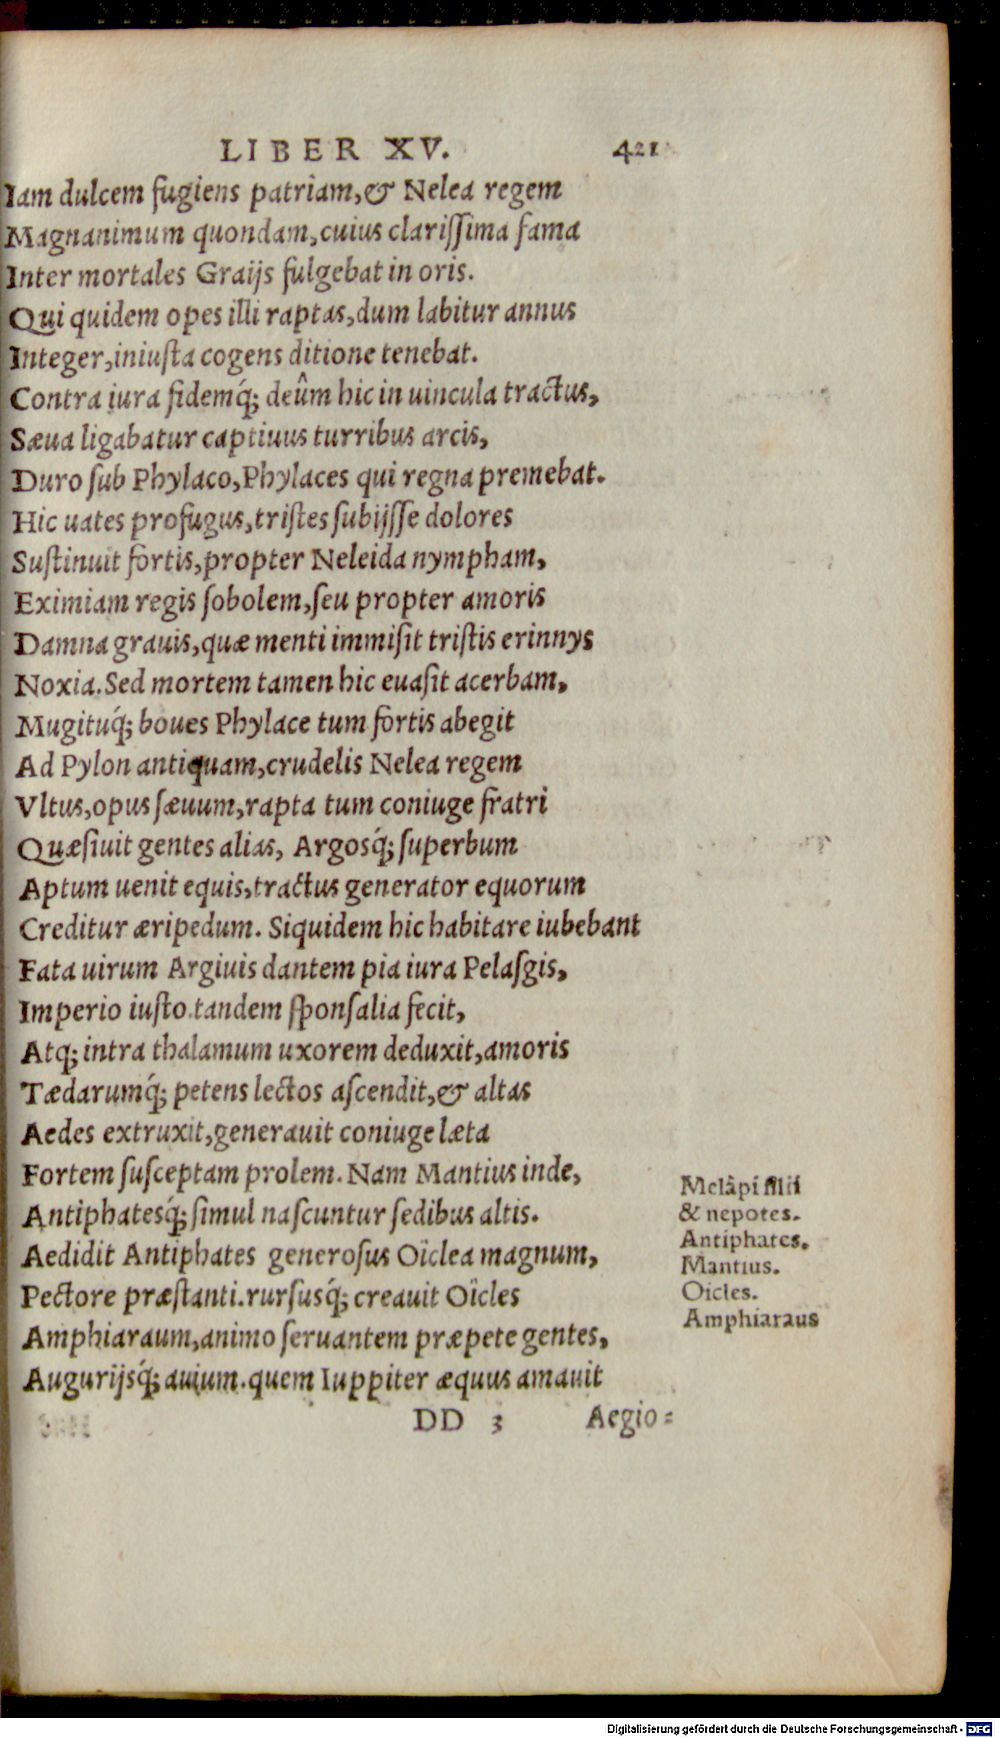 LIBER XV. 421
Iam dulcem fugiens patriam,& Nelea regem
Magnanimum quondam,cuius clarissima fama
Inter mortales Graijs fulgebat in oris.
Qui quidem opes illi raptas,dum labitur annus
Integer,iniusta cogens ditione tenebat.
Contra iura fidemq́; deûm hic in uincula tractus,
Sæua ligabatur captiuus turribus arcis,
Duro sub Phylaco,Phylaces qui regna premebat.
Hic uates profugus,tristes subijsse dolores
Sustinuit fortis,propter Neleida nympham,
Eximiam regis sobolem,seu propter amoris
Damna grauis,quæ menti immisit tristis erinnys
Noxia.Sed mortem tamen hic euasit acerbam,
Mugituq́; boues Phylace tum fortis abegit
Ad Pylon antiquam,crudelis Nelea regem
Vltus,opus sæuum,rapta tum coniuge fratri
Quæsiuit gentes alias, Argosq́; superbum
Aptum uenit equis,tractus generator equorum
Creditur æripedum. Siquidem hic habitare iubebant
Fata uirum Argiuis dantem pia iura Pelasgis,
Imperio iusto tandem sponsalia fecit,
Atq; intra thalamum uxorem deduxit,amoris
Tædarumq́; petens lectos ascendit,& altas
Aedes extruxit,generauit coniuge læta
Fortem susceptam prolem. Nam Mantius inde,
Antiphatesq́; simul nascuntur sedibus altis.
Aedidit Antiphates generosus Oïclea magnum,
Pectore præstanti.rursusq́; creauit Oïcles
Amphiaraum,animo seruantem præpete gentes,
Augurijsq́; auium.quem Iuppiter æquus amauit
Melãpi filii
& nepotes.
Antiphates.
Mantius.
Oicles.
Amphiaraus
DD 3 Aegio=
Digitalisierung gefördert durch die Deutsche Forschungsgemeinschaft - DFG